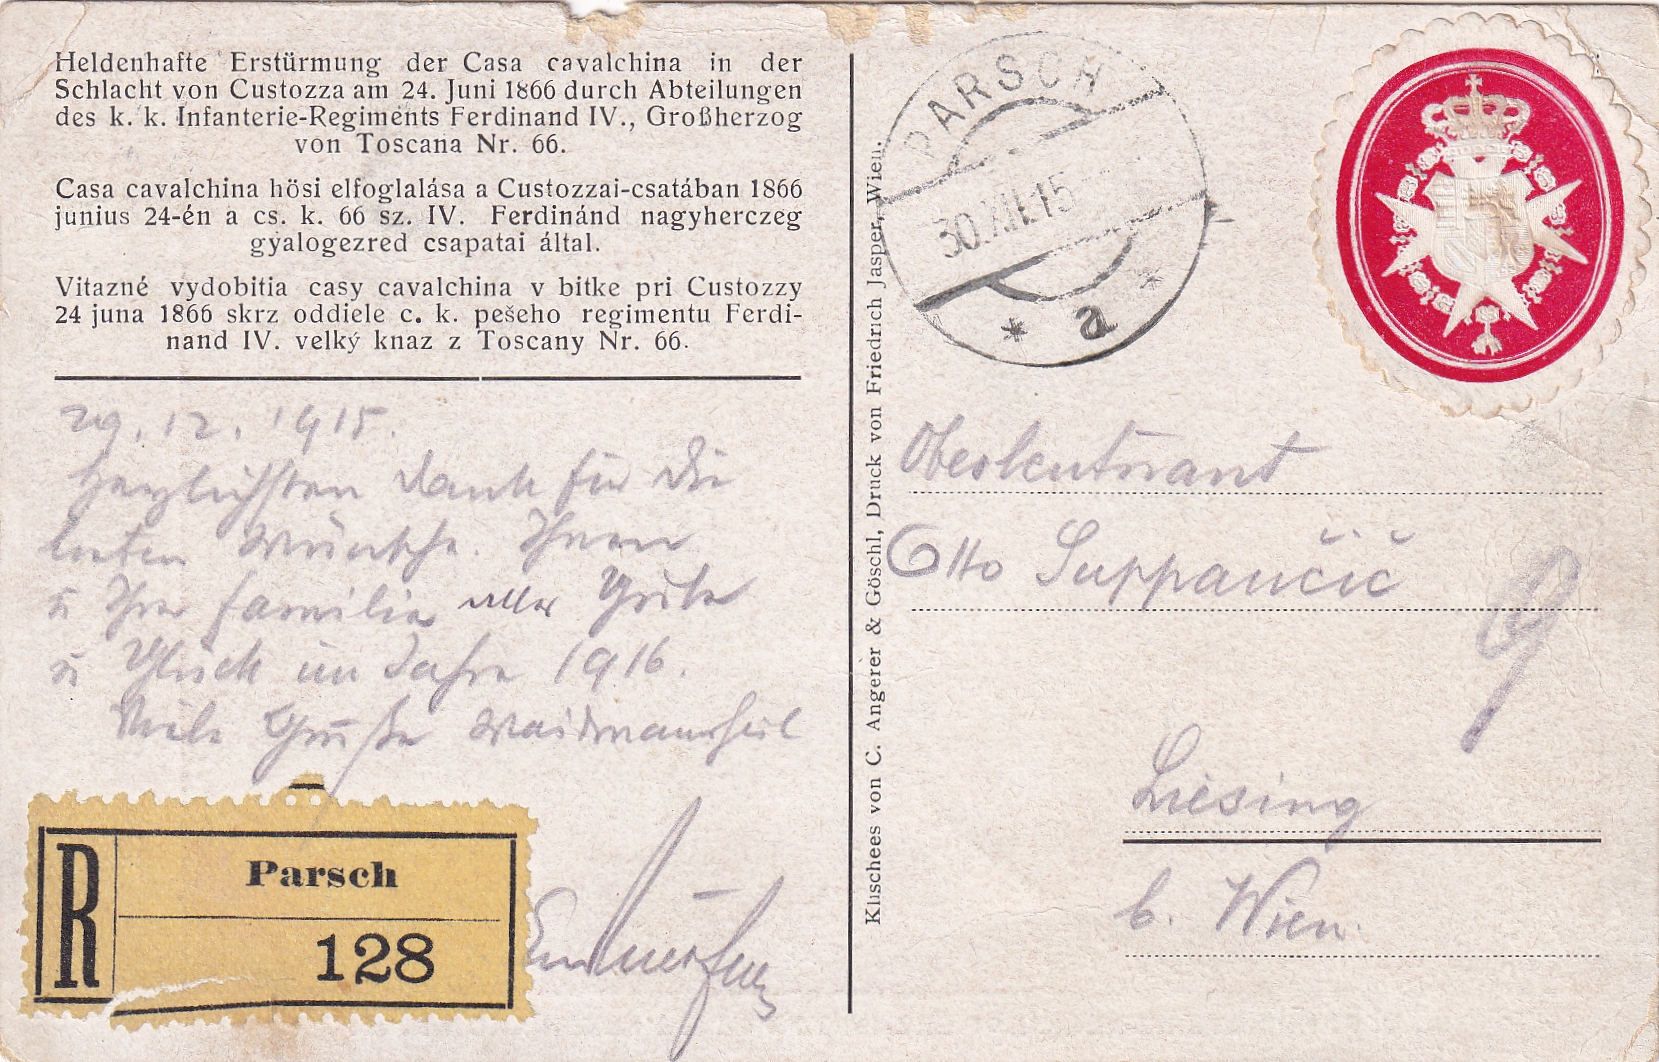 Heldenhafte Erstürmung der Casa cavalchina in der
Schlacht von Custozza am 24. Juni 1866 durch Abteilungen
des k. k. Infanterie-Regiments Ferdinand IV., Großherzog
von Toscana Nr. 66.
Casa cavalchina hösi elfoglalása a Custozzai-csatában 1866
junius 24-én a cs. k. 66 sz. IV. Ferdinánd nagyherczeg
gyalogezred csapatai által.
Vitazné vydobitia casy cavalchina v bitke pri Custozzy
24 juna 1866 skrz oddiele c. k. pešeho regimentu Ferdi-
nand IV. velký knaz z Toscany Nr. 66.
29.12.1915.
Herzlichsten Dank für die
Wünsche. Ihnen
u Ihrer Familie alles Gute
u Glück im Jahre 1916.
Viele Grüße Waidmannsheil
R
Parsch
128
Klischees von C. Angerer & Göschl, Druck von Friedrich Jasper, Wien.
PARSCH
30.XII.15
* a *
Oberleutnant
Otto Suppančič
Liesing
b. Wien.